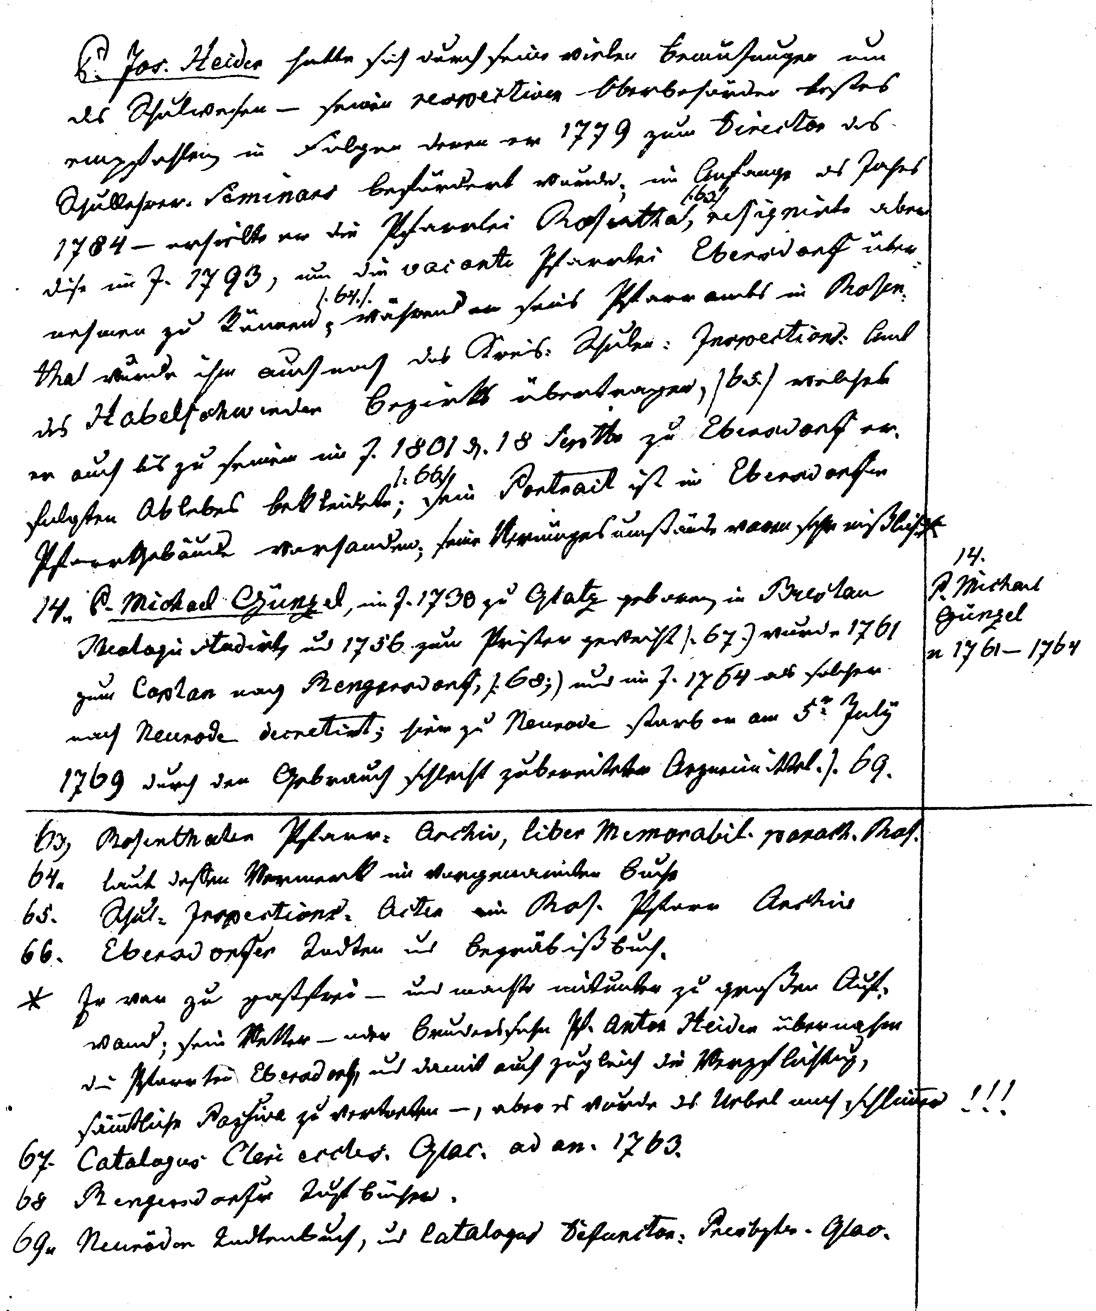 P. Jos. Heider hatte sich durch seine vielen Bemühungen um
das Schulwesen — seinen respectiven Oberbehörden bestes
empfohlen, in Folgen deren er 1779 zum Director des
Schullehrer-Seminars befördert wurde; im Anfange des Jahres
1784 — erhielte er die Pfarrtei Rosenthal, /:63/ resignirte aber
dise im J. 1793, um die vacante Pfarrtei Ebersdorf über-
nehmen zu können; /:64./. während er seines Pfarramts in Rosen-
thal wurde ihm auch noch das Kreis-Schulen-Inspections-Amt
des Habelschwerder Bezirks übertragen, /65./ welches
er auch bis zu seinem im J. 1801 d. 18 Septbr zu Ebersdorf er-
folgten Ablebes bekleidete; /:66/. sein Portrait ist im Ebersdorfer
Pfarrgebäude vorhanden; seine Vermögensumstände waren sehr mißlich *
14. P. Michael Günzel, im J. 1730 zu Glatz geboren, in Breslau
Theologie studirt, und 1756 zum Prister geweiht /. 67.) wurde 1761
zum Caplan nach Rengersdorf, /:68;) und im J. 1764 als solcher
nach Neurode decretirt; hier zu Neurode starb er am 5n July
1769 durch den Gebrauch schlecht zubereiteter Arzneimittel. /. 69.
14.
P. Michael
Günzel
n 1761 — 1764
63, Rosenthaler Pfarr-Archiv, liber Memorabil. paroch. Ros.
64. laut dessen Vermerk im vorgenannten Buche
65. Schul-Inspections-Acten im Ros. Pfarr Archiv
66. Ebersdorfer Todten und Begräbnißbuch.
* Er war zu gastfrei — und machte mitunter zu großen Auf-
wand; sein Vetter — oder Brudersohn Pf. Anton Heider übernahm
die Pfarrtei Ebersdorf, und damit auch zugleich die Verpflichtung,
sämmtliche Passiva zu vertreten —, aber es wurde das Uebel noch schlimmer !!!
67. Catalogus Cleri eccles. Glac. ad an. 1763.
68 Rengersdorfer Taufbücher.
69. Neuröder Todtenbuch, und Catalogus Defunctor. Presbyter. Glac.